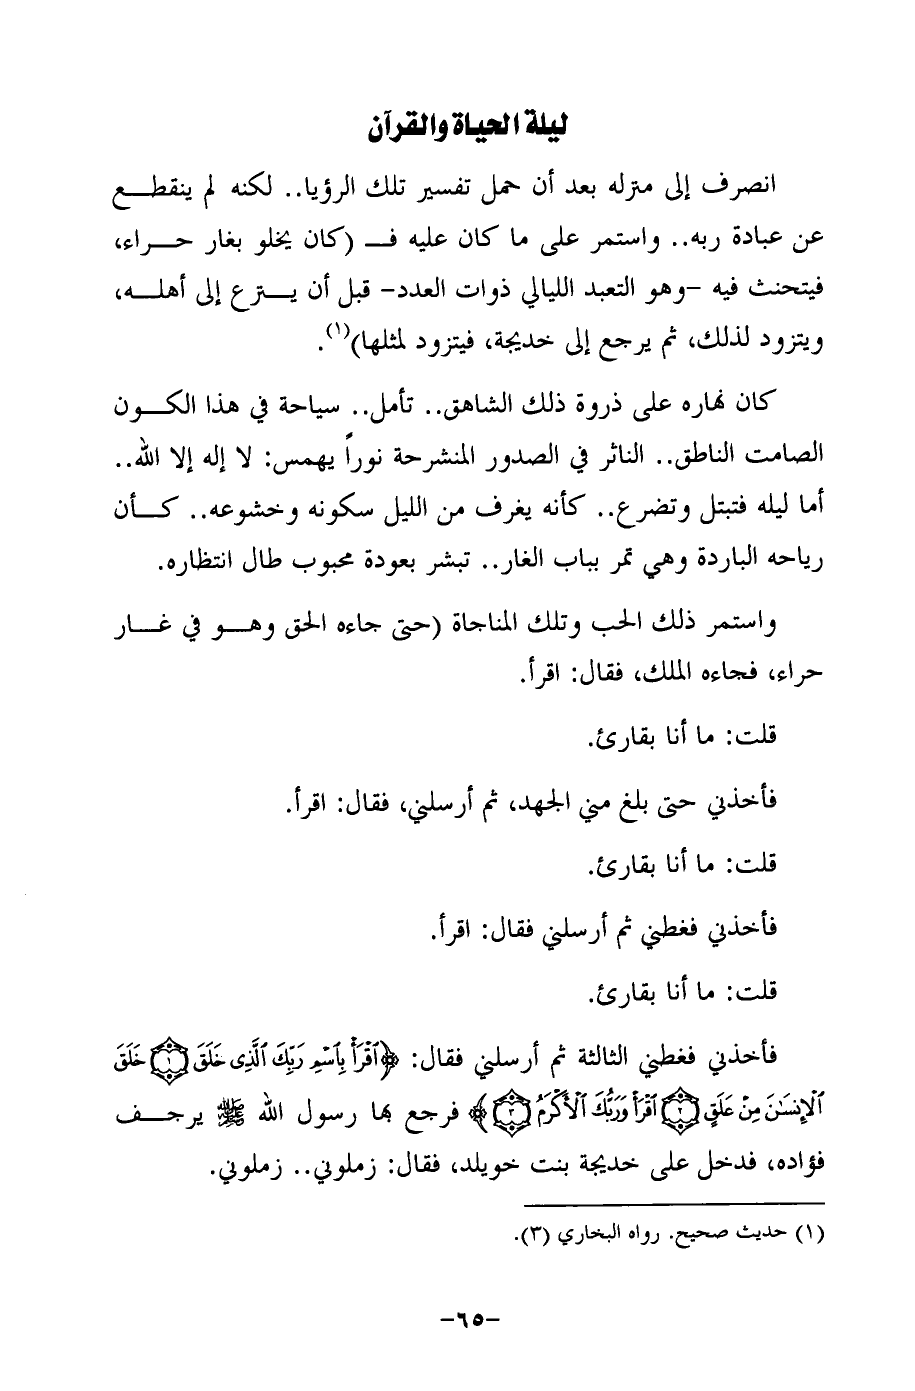 ليلة الحياة والقرآن
انصرف إلى منزله بعد أن حمل تفسير تلك الرؤيا.. لكنه لم ينقطع
عن عبادة ربه.. واستمر على ما كان عليه فـ (كان يخلو بغار حراء،
فيتحنث فيه -وهو التعبد الليالي ذوات العدد- قبل أن ينزع إلى أهله،
ويتزود لذلك، ثم يرجع إلى خديجة، فيتزود لمثلها)(١).
كان نهاره على ذروة ذلك الشاهق.. تأمل.. سياحة في هذا الكون
الصامت الناطق.. الناثر في الصدور المنشرحة نوراً يهمس: لا إله إلا الله..
أما ليله فتبتل وتضرع.. كأنه يغرف من الليل سكونه وخشوعه.. كأن
رياحه الباردة وهي تمر بباب الغار.. تبشر بعودة محبوب طال انتظاره.
واستمر ذلك الحب وتلك المناجاة (حتى جاءه الحق وهو في غار
حراء، فجاءه الملك، فقال: اقرأ.
قلت: ما أنا بقارئ.
فأخذني حتى بلغ مني الجهد، ثم أرسلني، فقال: اقرأ.
قلت: ما أنا بقارئ.
فأخذني فغطني ثم أرسلني فقال: اقرأ.
قلت: ما أنا بقارئ.
فأخذني فغطني الثالثة ثم أرسلني فقال: ﴿ٱقْرَأْ بِٱسْمِ رَبِّكَ ٱلَّذِى خَلَقَ ١ خَلَقَ
ٱلْإِنسَـٰنَ مِنْ عَلَقٍ ٢ ٱقْرَأْ وَرَبُّكَ ٱلْأَكْرَمُ ٣﴾ فرجع بها رسول الله ﷺ يرجف
فؤاده، فدخل على خديجة بنت خويلد، فقال: زملوني.. زملوني.
(١) حديث صحيح. رواه البخاري (٣).
-٦٥-